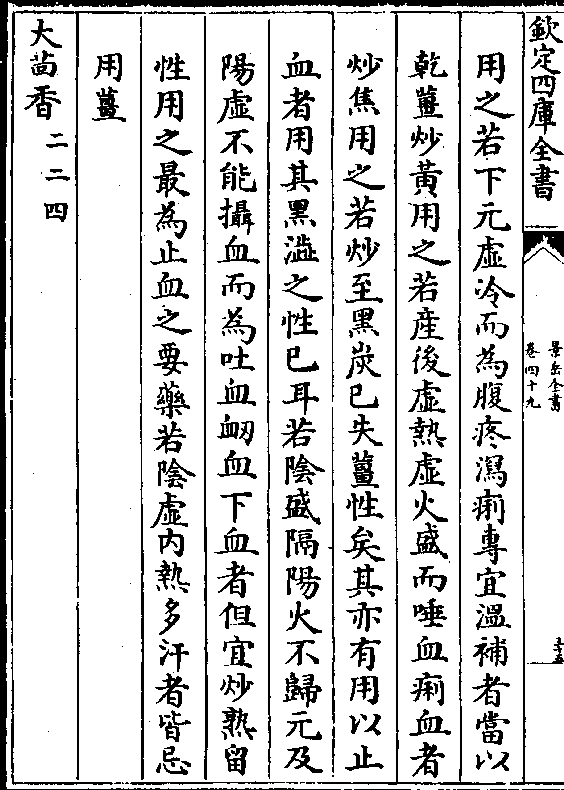 欽定四庫全書
景岳全書
卷四十九
用之若下元虛冷而為腹疼瀉痢專宜溫補者當以
乾薑炒黃用之若產後虛熱虛火盛而唾血痢血者
炒焦用之若炒至黑炭已失薑性矣其亦有用以止
血者用其黑澁之性已耳若陰盛隔陽火不歸元及
陽虛不能攝血而為吐血衂血下血者但宜炒熟留
性用之最為止血之要藥若陰虛內熱多汗者皆忌
用薑
大茴香二二四